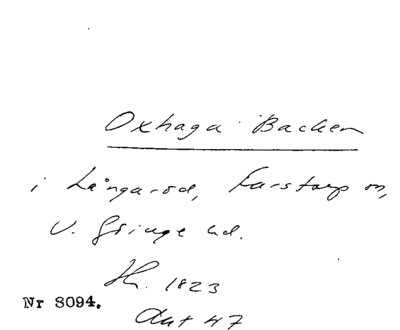 Oxhaga Backen
i Långaröd, Farstorp sn,
V. Göinge hd.
Hh. 1823
Nr 8094.
Akt 47